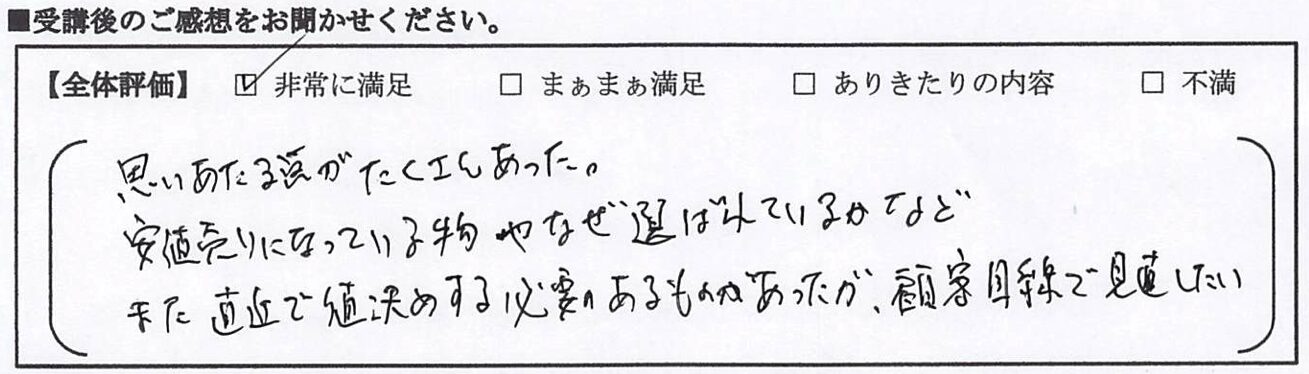 ■受講後のご感想をお聞かせください。
【全体評価】 ☑ 非常に満足 □ まぁまぁ満足 □ ありきたりの内容 □ 不満
思いあたる点がたくさんあった。
安値売りになっている物やなぜ選ばれているかなど
また直近で値決めする必要のあるものがあったが、顧客目線で見直したい